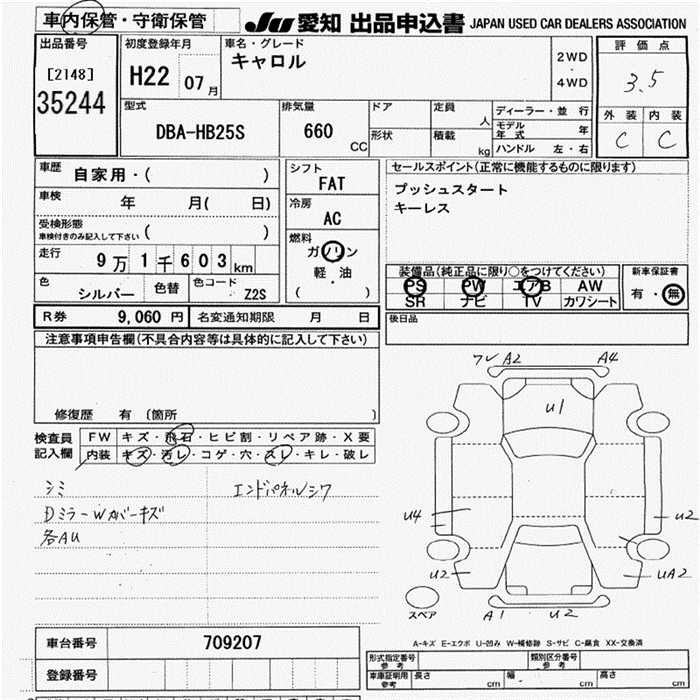 車内保管・守衛保管
JU 愛知 出品申込書 JAPAN USED CAR DEALERS ASSOCIATION
出品番号
[2148]
35244
初度登録年月
H22 07月
車名・グレード
キャロル
2WD
・
4WD
評価点
3.5
外装 内装
C C
型式
DBA-HB25S
排気量
660
CC
ドア
形状
定員
人
積載
kg
ディーラー・並行
モデル年式 年
ハンドル 左・右
車歴
自家用・( )
車検
年 月( 日)
受検形態
車検付きのみ記入して下さい ( )
走行
9万1千603km
色
シルバー
色替
色コード
Z2S
シフト
FAT
冷房
AC
燃料
ガソリン
軽・油
( )
セールスポイント(正常に機能するものに限ります)
プッシュスタート
キーレス
装備品(純正品に限り○をつけてください)
PS PW エアB AW
SR ナビ TV カワシート
新車保証書
有・無
後日品
R券 9,060 円
名変通知期限 月 日
注意事項申告欄(不具合内容等は具体的に記入して下さい)
修復歴 有 〔箇所 〕
検査員記入欄
FW キズ・飛石・ヒビ割・リペア跡・X要
内装 キズ・汚レ・コゲ・穴・スレ・キレ・破レ
シミ
DミラーWカバーキズ
各AU
エンドパネルシワ
フレ A2
A4
U1
U4
U2
U2
UA2
スペア
A1
U2
A-キズ E-エクボ U-凹み W-補修跡 S-サビ C-腐食 XX-交換済
車台番号
709207
登録番号
形式指定番号
参考
類別区分番号
参考
車庫証明用
参考
長さ cm
幅 cm
高さ cm